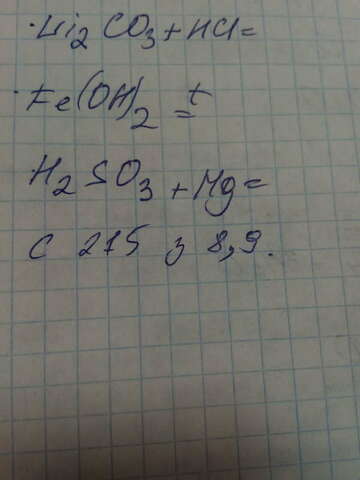 ·Li₂CO₃+HCl=
·Fe(OH)₂ =ᵗ
H₂SO₃+Mg=
с 215 з 8,9.